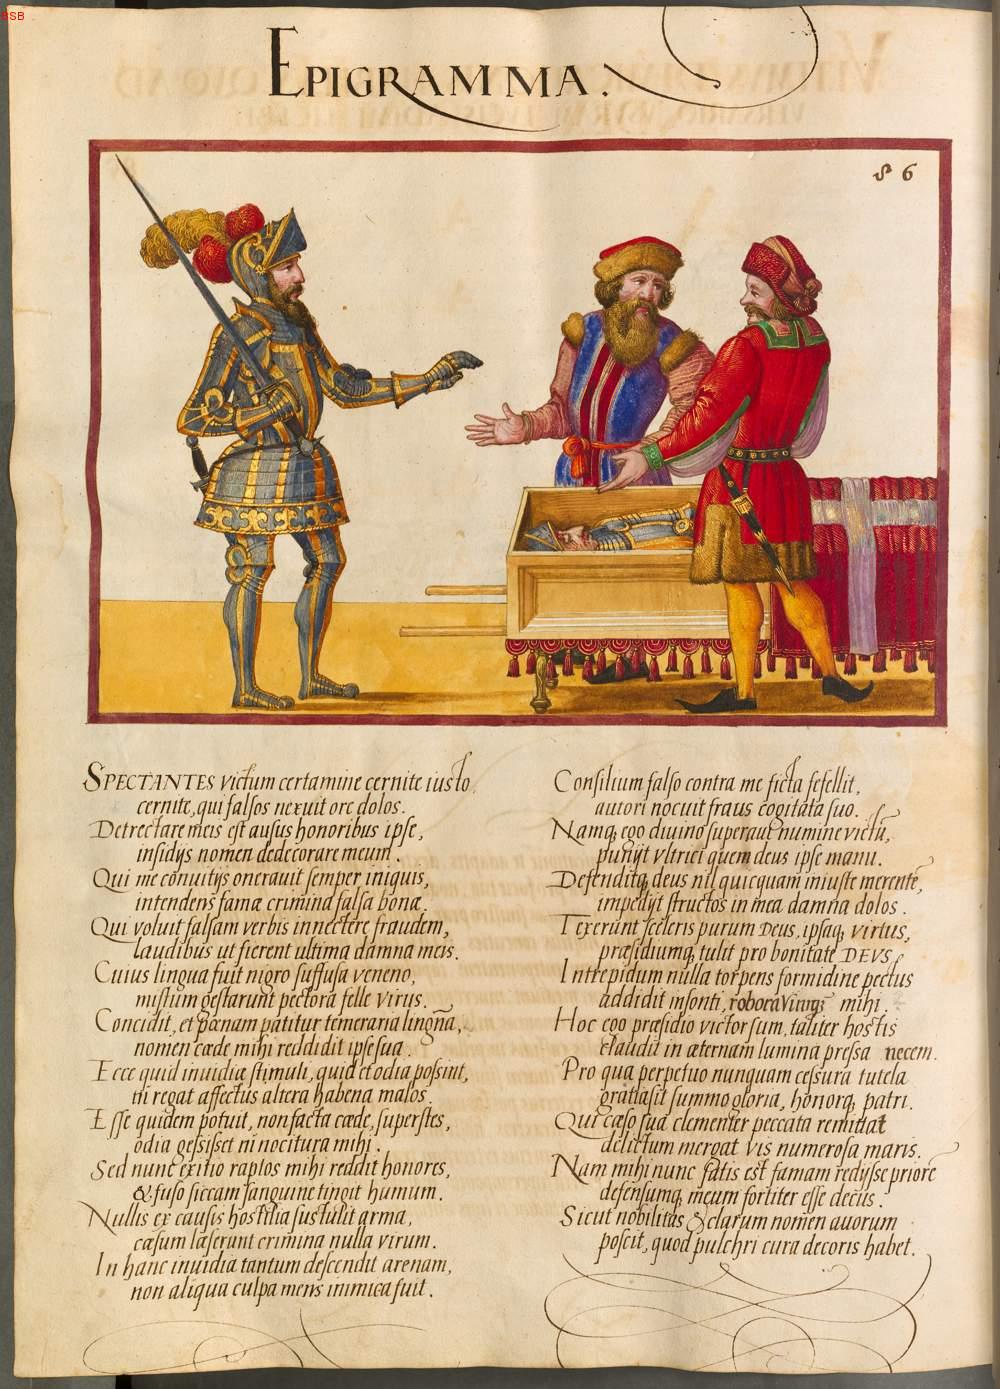 BSB
EPIGRAMMA.
86
SPECTANTES victum certamine cernite iusto,
cernite, qui falsos nexuit ore dolos.
Detrectare meis est ausus honoribus ipse,
insidijs nomen dedecorare meum.
Qui me convitijs oneravit semper iniquis,
intendens famæ crimina falsa bonæ.
Qui voluit falsam verbis innectere fraudem,
laudibus ut fierent ultima damna meis.
Cuius lingua fuit nigro suffusa veneno,
mistum gestarunt pectora felle virus.
Concidit, et pœnam patitur temeraria lingua,
nomen cæde mihi reddidit ipse sua.
Ecce quid invidiæ stimuli, quid et odia possint,
ni regat affectus altera habena malos.
Esse quidem potuit, non facta cæde, superstes,
odia gessisset ni nocitura mihi.
Sed nunc exitio raptos mihi reddit honores,
& fuso siccam sanguine tingit humum.
Nullis ex causis hostilia sustulit arma,
cæsum læserunt crimina nulla virum.
In hanc invidia tantum descendit arenam,
non aliqua culpa mens inimica fuit.
Consilium falso contra me ficta fefellit,
autori nocuit fraus cogitata suo.
Namq; ego divino superavi numine victū,
punijt vltrici quem deus ipse manu.
Defenditq; deus nil quicquam iniuste merentē,
impedijt structos in mea damna dolos.
Texerunt sceleris purum Deus, ipsaq; virtus,
præsidiumq; tulit pro bonitate DEVS.
Intrepidum nulla torpens formidine pectus
addidit insonti, roboraq; mihi.
Hoc ego præsidio victor sum, taliter hostis
claudit in æternam lumina pressa necem.
Pro qua perpetuo nunquam cessura tutela
gratia sit summo gloria, honorq; patri.
Qui cæso sua clementer peccata remittat
delictum mergat vis numerosa maris.
Nam mihi nunc satis est famam redijsse priorē
defensumq; meum fortiter esse decus.
Sicut nobilitas & clarum nomen avorum
poscit, quod pulchri cura decoris habet.